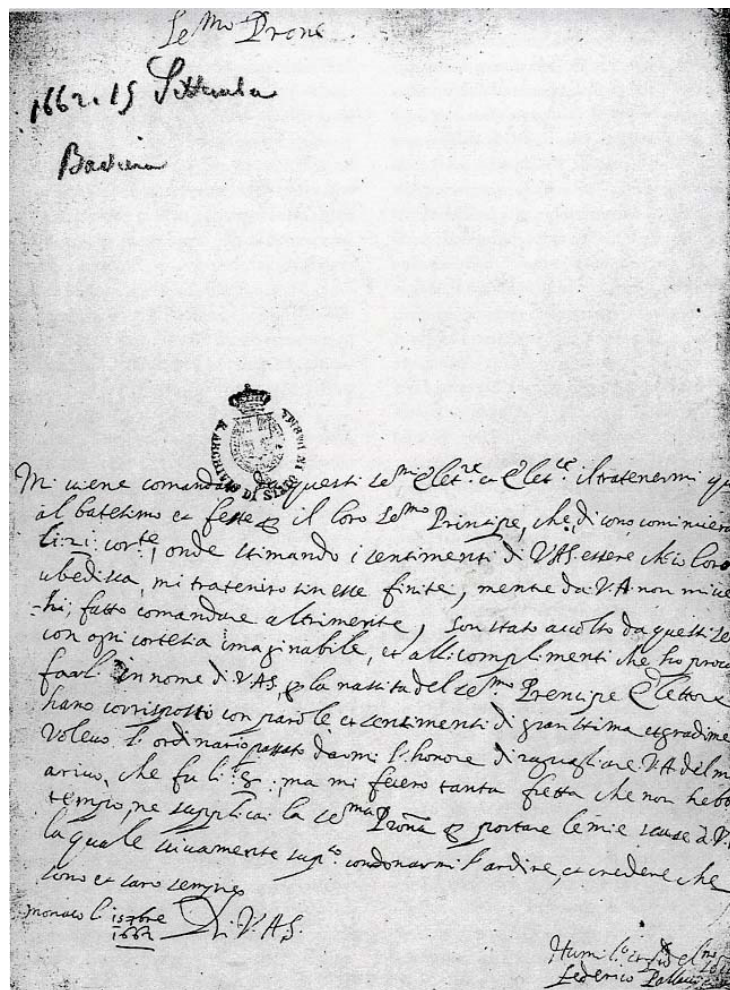 Se.mo Prone
1662. 15 Settembre
Baviera
ARCHIVIO DI STATO IN
Mi viene comandato da questi Ser.mi Elet.re et Elet.ce il tratenermi qu
al batesimo et feste il loro Ser.mo Principe, che dicono cominciera
li: 21: cor.te, onde stimando i sentimenti di V.A.S. essere ch'io loro
ubedisca, mi tratenirò sin esse finite, mentre da V.A. non mi ue
fatto comandare altrimente, son stato accolto da questi Se
con ogni cortesia imaginabile, et alli complimenti che ho procu
farli in nome di V.A.S. la nascita del Se.mo Prencipe Elettora
hano corrisposto con parole et sentimenti di gran stima et gradime
Volevo l'ordinario passato darmi l'honore di raguagliare V.A. del m
arivo, che fu li: 8:, ma mi fecero tanta fretta che non hebb
tempo, ne supplicai la Se.ma Prona portare le mie scuse à V.
la quale vivamente sup.co condonarmi l'ardire, et credere che
sono et saro sempre
monaco li 15 7bre
1662
Di V.A.S.
Humil.o
Federico Pallavicino